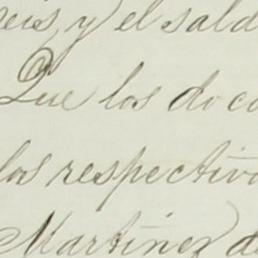 eis, y el sald
Que los doc
los respectiv
Martinez d